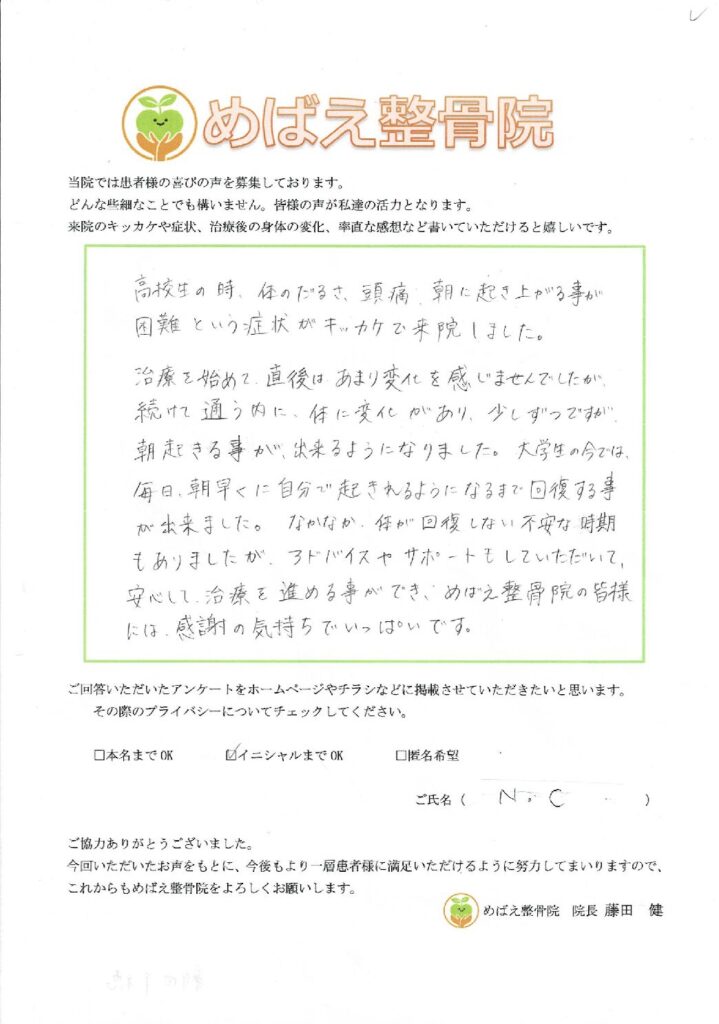 めばえ整骨院
当院では患者様の喜びの声を募集しております。
どんな些細なことでも構いません。皆様の声が私達の活力となります。
来院のキッカケや症状、治療後の身体の変化、率直な感想など書いていただけると嬉しいです。
高校生の時、体のだるさ、頭痛、朝に起き上がる事が
困難という症状がキッカケで来院しました。
治療を始めて、直後はあまり変化を感じませんでしたが、
続けて通う内に、体に変化があり、少しずつですが、
朝起きる事が、出来るようになりました。大学生の今では、
毎日、朝早くに自分で起きれるようになるまで回復する事
が出来ました。なかなか、体が回復しない不安な時期
もありましたが、アドバイスやサポートもしていただいて、
安心して、治療を進める事ができ、めばえ整骨院の皆様
には、感謝の気持ちでいっぱいです。
ご回答いただいたアンケートをホームページやチラシなどに掲載させていただきたいと思います。
その際のプライバシーについてチェックしてください。
□本名までOK ☑イニシャルまでOK □匿名希望
ご氏名（ N.C ）
ご協力ありがとうございました。
今回いただいたお声をもとに、今後もより一層患者様に満足いただけるように努力してまいりますので、
これからもめばえ整骨院をよろしくお願いします。
めばえ整骨院 院長 藤田 健